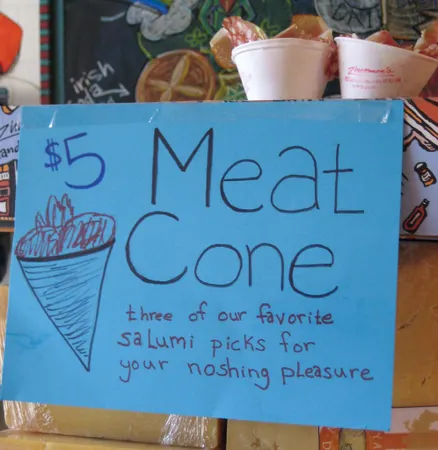 $5
Meat
Cone
three of our favorite
salumi picks for
your noshing pleasure
Zingerman's
irish